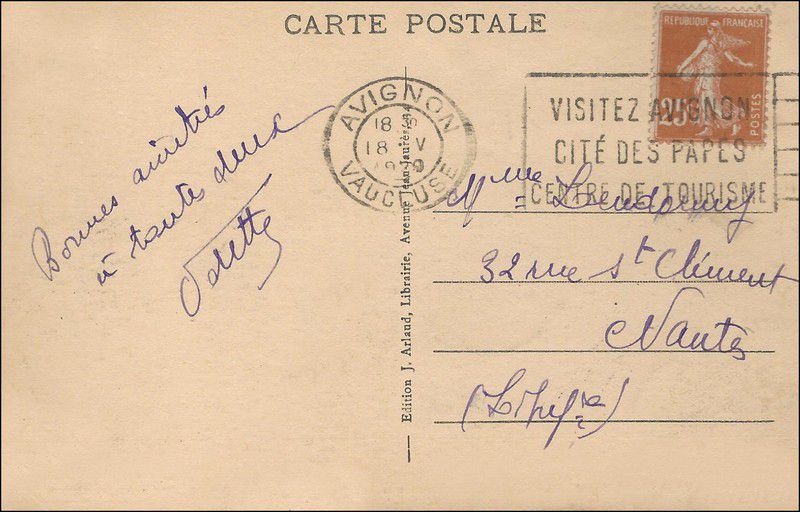 CARTE POSTALE
Bonnes amitiés
à toutes deux
Odette
AVIGNON
18
18 V
VAUCLUSE
REPUBLIQUE FRANÇAISE
POSTES
VISITEZ AVIGNON
CITÉ DES PAPES
CENTRE DE TOURISME
Edition J. Arlaud, Librairie, Avenue Jean-Jaurès, 34
Mme
32 rue St Clément
Nantes